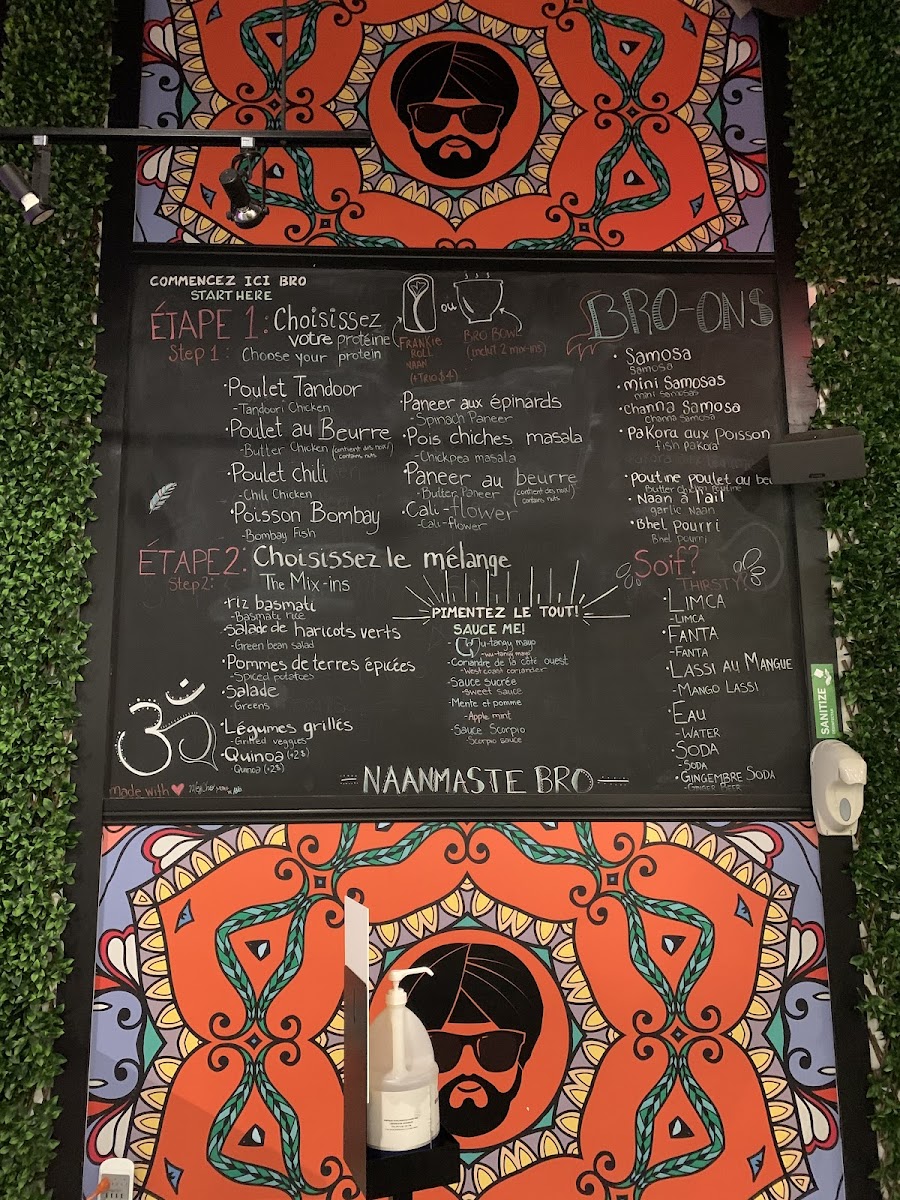 COMMENCEZ ICI BRO
START HERE
ÉTAPE 1: Choisissez
votre protéine
Step 1: Choose your protein
ou
FRANKIE
ROLL
NAAN
(+TRIO $4)
BRO BOWL
(inclut 2 mix-ins)
•Poulet Tandoor
-Tandoori Chicken
•Poulet au Beurre
-Butter Chicken (contient des noix!)
contains nuts
•Poulet chili
-Chili Chicken
•Poisson Bombay
-Bombay Fish
•Paneer aux épinards
-Spinach Paneer
•Pois chiches masala
-Chickpea masala
•Paneer au beurre
-Butter Paneer (contient des noix!)
contains nuts
•Cali-flower
-Cali-flower
ÉTAPE 2: Choisissez le mélange
Step 2: The Mix-ins
•riz basmati
-Basmati rice
•salade de haricots verts
-Green bean salad
•Pommes de terres épicées
-Spiced potatoes
•Salade
-Greens
•Légumes grillés
-Grilled veggies
•Quinoa (+2$)
-Quinoa (+2$)
PIMENTEZ LE TOUT!
SAUCE ME!
-Wu-tangy mayo
-wu-tangy mayo
-Coriandre de la côté ouest
-West coast coriander
-Sauce sucrée
-Sweet sauce
-Mente et pomme
-Apple mint
-Sauce Scorpio
-Scorpio sauce
BRO-ONS
•Samosa
Samosa
•mini Samosas
mini Samosas
•channa Samosa
channa Samosa
•Pakora aux Poisson
fish pakora
•Poutine poulet au
Butter Chicken Poutine
•Naan à l'ail
garlic Naan
•Bhel pourri
Bhel pourri
Soif?
THIRSTY?
•LIMCA
-LIMCA
•FANTA
-FANTA
•LASSI AU MANGUE
-MANGO LASSI
•EAU
-WATER
•SODA
-SODA
•GINGEMBRE SODA
-GINGER BEER
ॐ
made with ♥
=NAANMASTE BRO=
SANITIZE